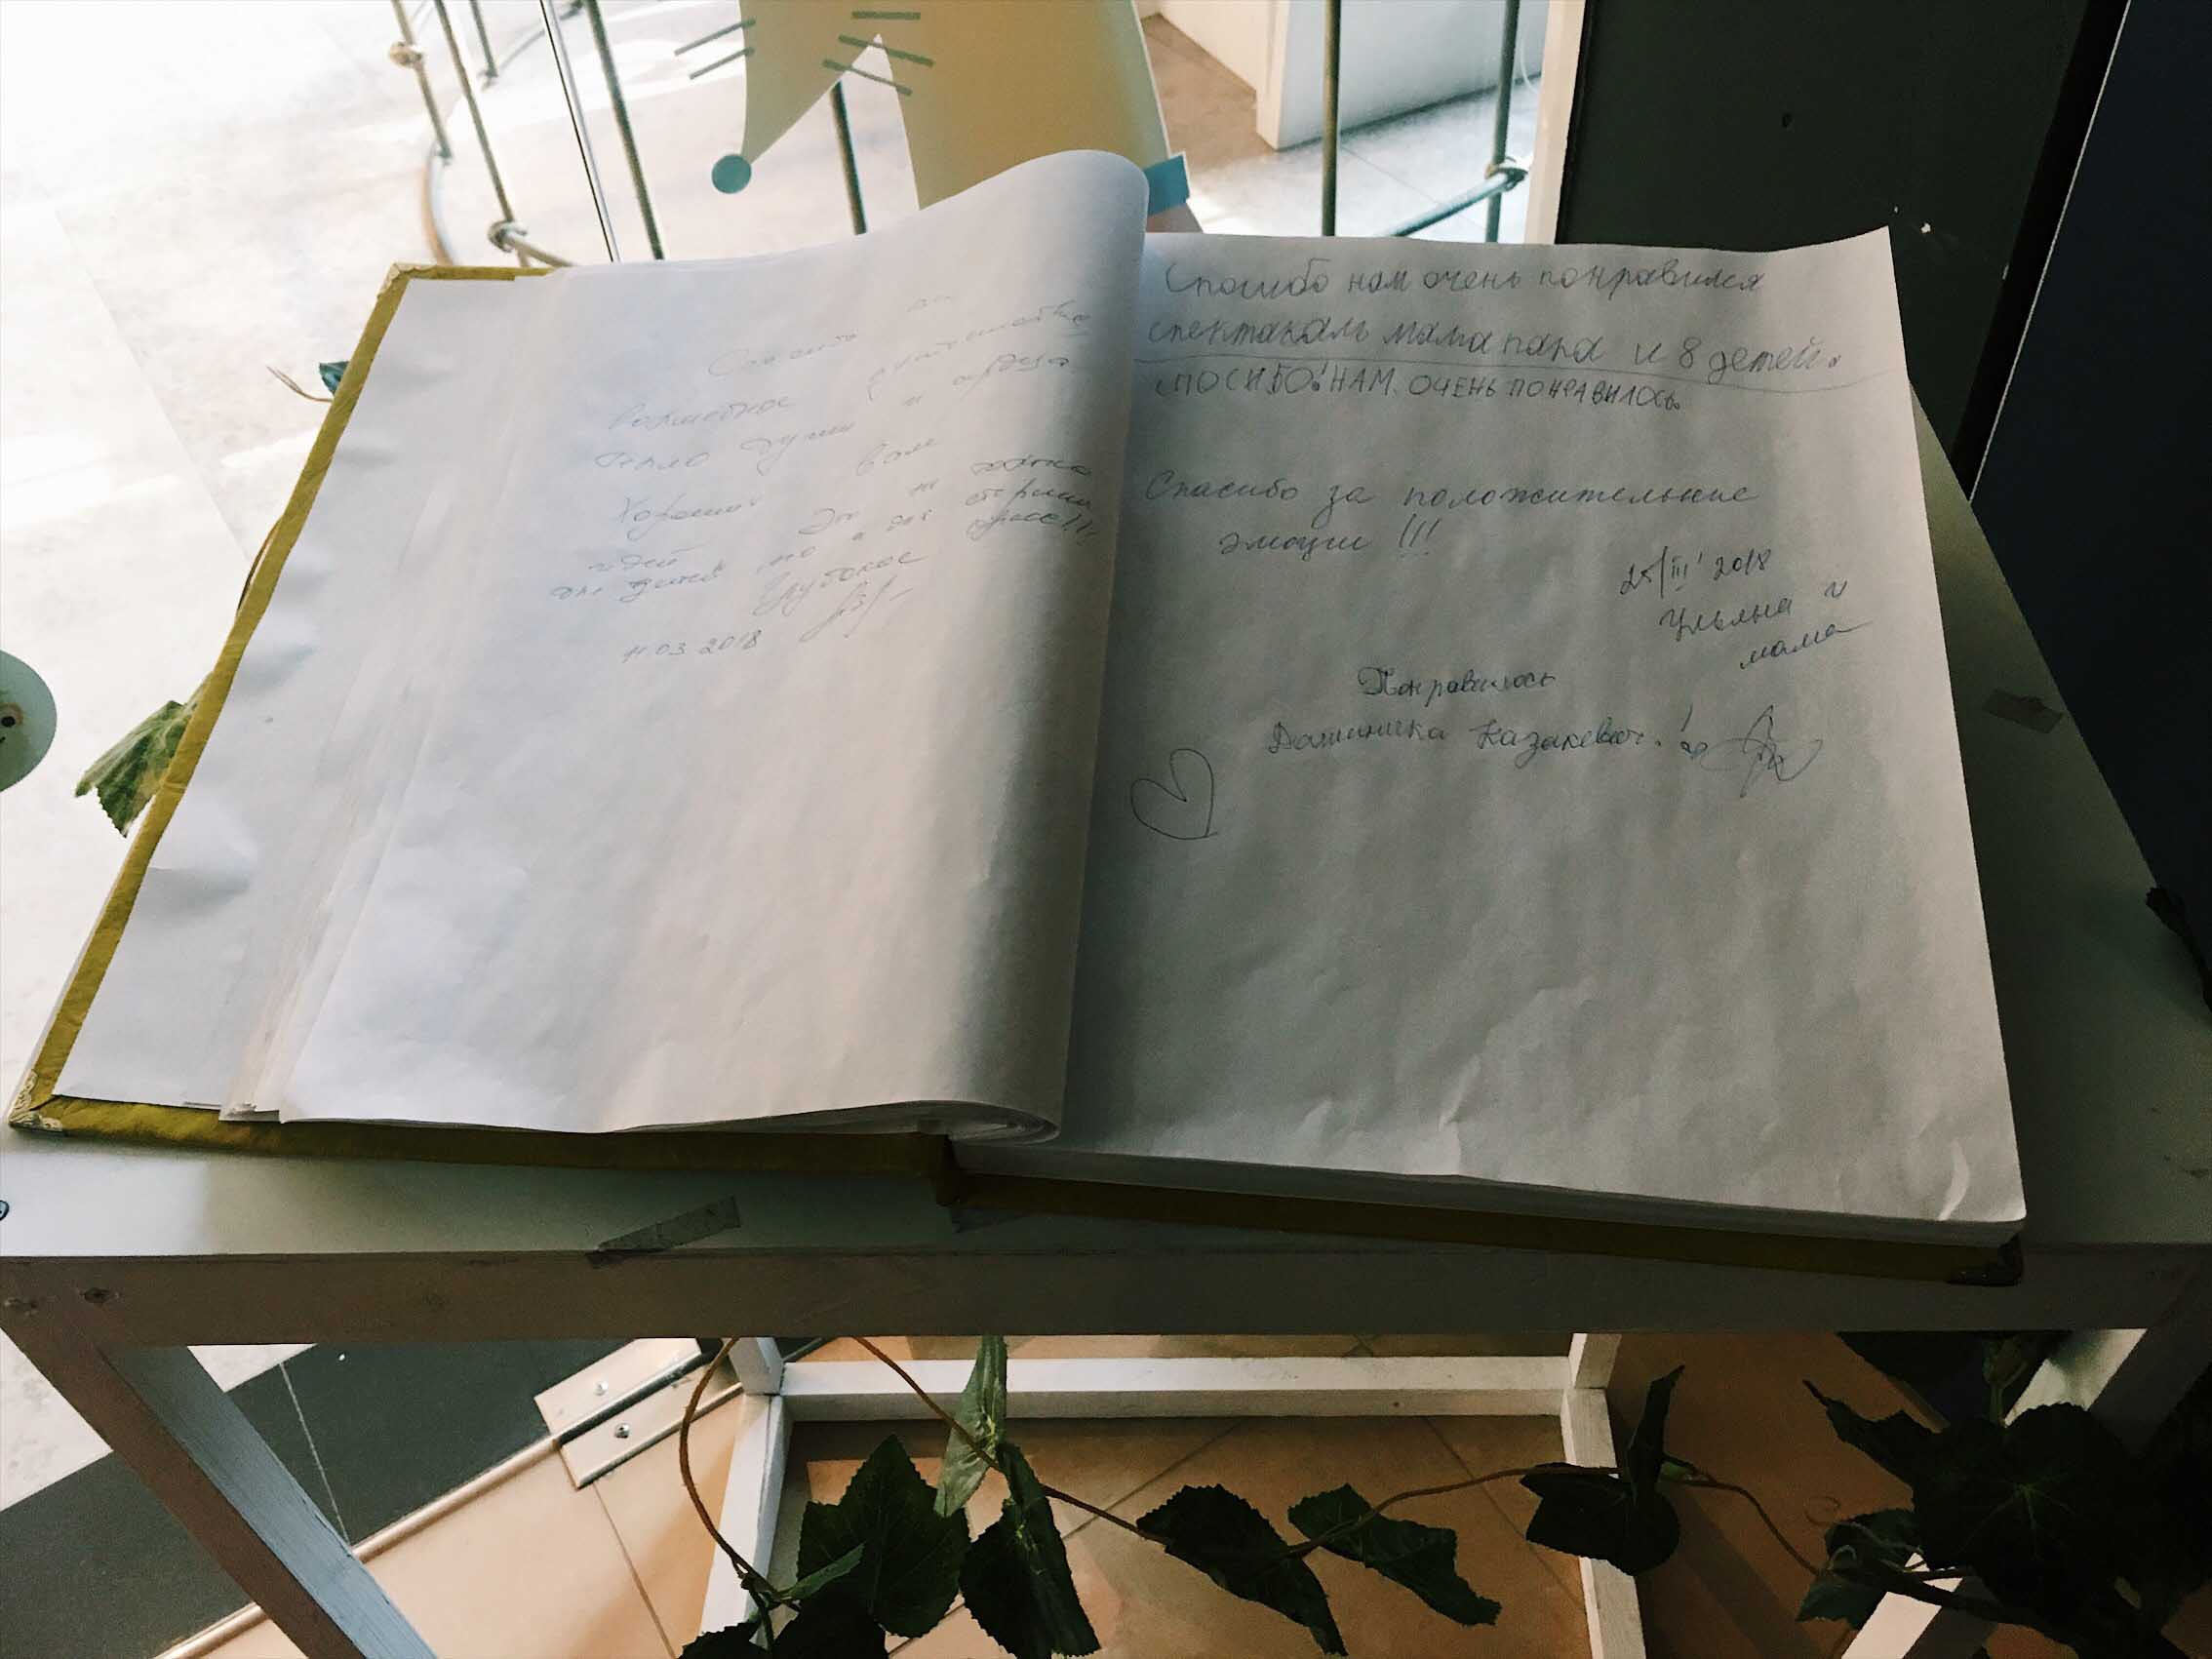 Спасибо
волшебное
тепло души и
Хороших Вам
идей Это не только
для детей, но и для старших
Глубокое
11.03.2018
Спосибо нам очень понравился
спектакаль мама папа и 8 детей.
СПОСИБО! НАМ ОЧЕНЬ ПОНРАВИЛОСЬ
Спасибо за положительные
эмоции !!!
25/III 2018
Ульяна и
мама
Понравилось
Доминика Казакевич!